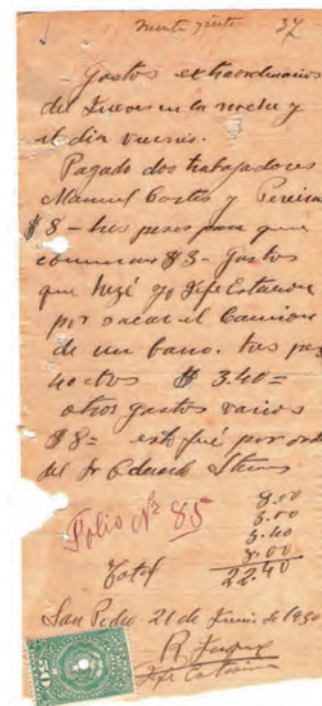 37
Gastos extraordinarios
del Jueves en la noche y
el dia viernes.
Pagado dos trabajadores
Manuel Cortes y Pereira
$ 8 - tres pesos para que
comieran $3 - Gastos
que hizé yo Jefe Estacion
por sacar el Camion
de un bano. tres pes
40 ctvs $ 3.40 =
otros gastos varios
$ 8 = esto fué por orde
del Sr Eduardo
Folio Nº 85
8.00
3.00
3.40
8.00
Total 22.40
San Pedro 21 de Junio de 1930
R
Jefe Estacion
50